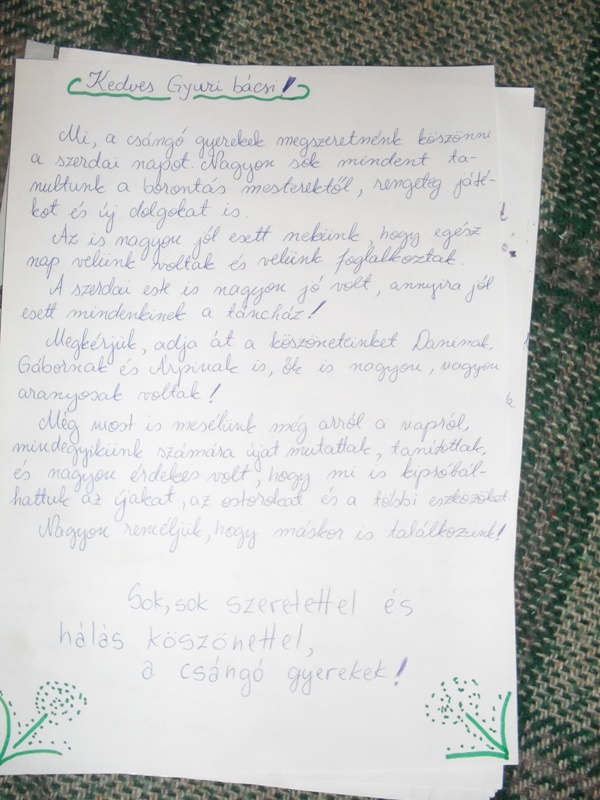 Kedves Gyuri bácsi!
Mi, a csángó gyerekek megszeretnénk köszönni
a szerdai napot. Nagyon sok mindent ta-
nultunk a borontás mesterektől, rengeteg játé-
kot és új dolgokat is.
Az is nagyon jól esett nekünk, hogy egész
nap velünk voltak és velünk foglalkoztak.
A szerdai este is nagyon jó volt, annyira jól
esett mindenkinek a táncház!
Megkérjük, adja át a köszöneteinket Daninak,
Gábornak és Árpinak is, ők is nagyon, nagyon
aranyosak voltak!
Még most is mesélünk még arról a napról,
mindegyikünk számára újat mutattak, tanítottak,
és nagyon érdekes volt, hogy mi is kipróbál-
hattuk az íjakat, az ostorokat és a többi eszközöket
Nagyon reméljük, hogy máskor is találkozunk!
Sok, sok szeretettel és
hálás köszönettel,
a csángó gyerekek!